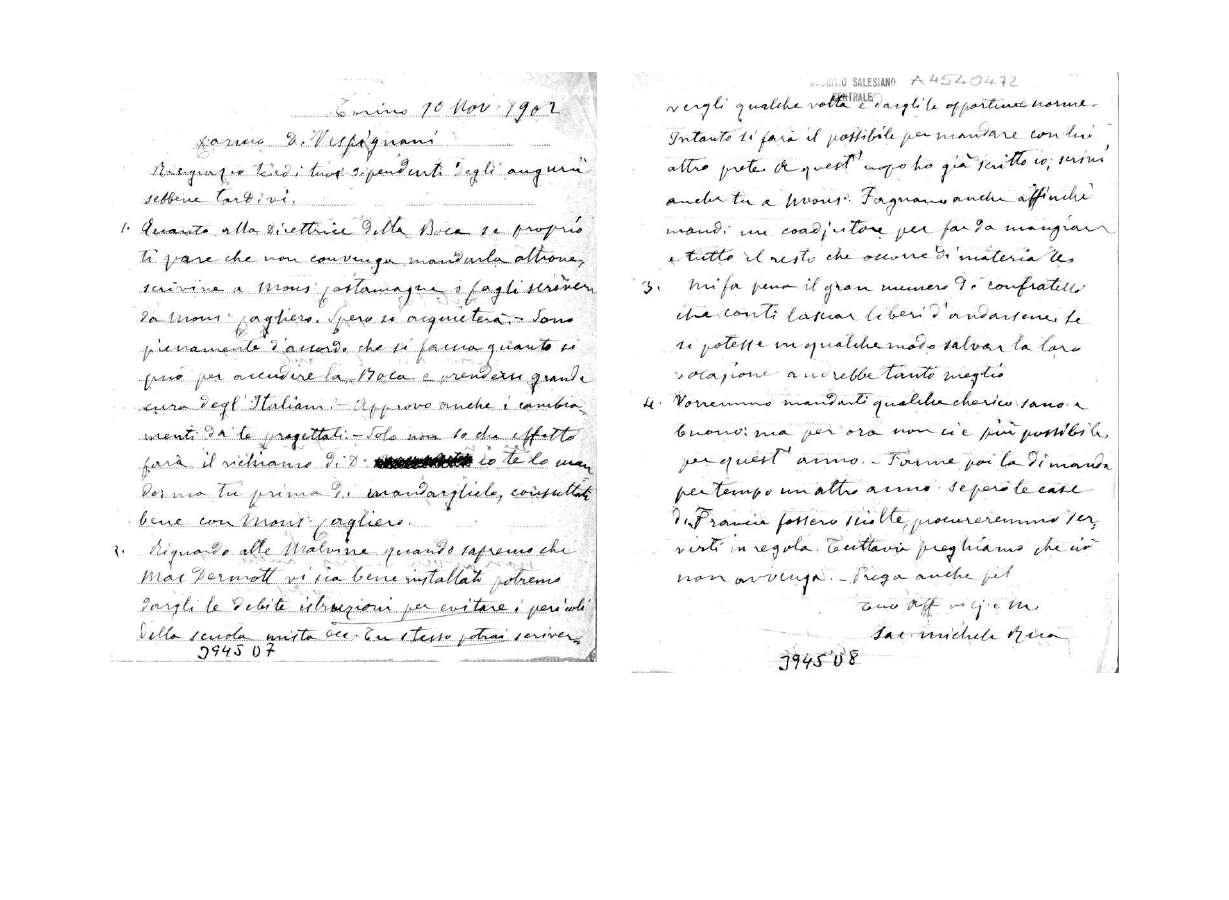 Torino 10 Nov. 1902
Carmo D. Vespignani
Ringrazio te ed i tuoi dipendenti degli augurii
sebbene tardivi.
1. Quanto alla Direttrice della Boca se proprio
ti pare che non convenga mandarla altrove,
scrivine a Mons. Costamagna e fagli scrivere
da Mons. Cagliero. Spero si acquieterà. - Sono
pienamente d'accordo che si faccia quanto si
può per accudire la Boca e prendersi grande
cura degl'Italiani. - Approvo anche i cambia-
menti da te progettati. - Solo non so che effetto
farà il richiamo di D. io te lo man
do ma tu prima di mandarglielo, consultati
bene con Mons. Cagliero.
2. Riguardo alle Malvine quando sapremo che
Mac Dermott vi sia bene installato potremo
dargli le debite istruzioni per evitare i pericoli
della scuola mista ecc. Tu stesso potrai scriver-
3945 D7
ARCHIVIO SALESIANO
CENTRALE
A4540472
vergli qualche volta e dargli le opportune norme.
Intanto si farà il possibile per mandare con lui
altro prete. A quest'uopo ho già scritto io; scrivi
anche tu a Mons. Fagnano anche affinchè
mandi un coadjutore per far da mangiare
e tutto il resto che occorre di materiale
3. Mi fa pena il gran numero di confratelli
che conti lasciar liberi d'andarsene. Se
si potesse in qualche modo salvar la loro
vocazione andrebbe tanto meglio
4. Vorremmo mandarti qualche cherico sano e
buono: ma per ora non ci è più possibile,
per quest'anno. - Fanne poi la dimanda
per tempo un altro anno. Se però le case
di Francia fossero sciolte, procureremmo ser-
virti in regola. Tuttavia preghiamo che ciò
non avvenga. - Prega anche pel
Tuo aff in G. e M.
Sac. Michele Rua
3945 D8